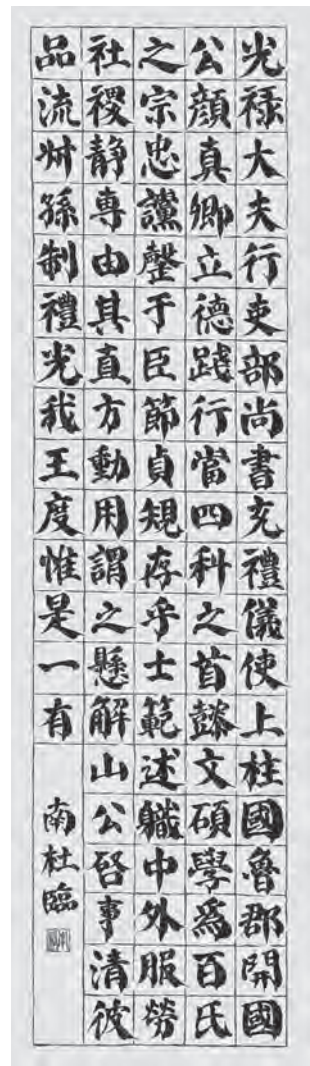 光禄大夫行吏部尚書充禮儀使上柱國魯郡開國
公顔真卿立德踐行當四科之首懿文碩學爲百氏
之宗忠讜罄于臣節貞規存乎士範述職中外服勞
社稷靜專由其直方動用謂之懸解山公啓事清彼
品流叔孫制禮光我王度惟是一有
南杜臨